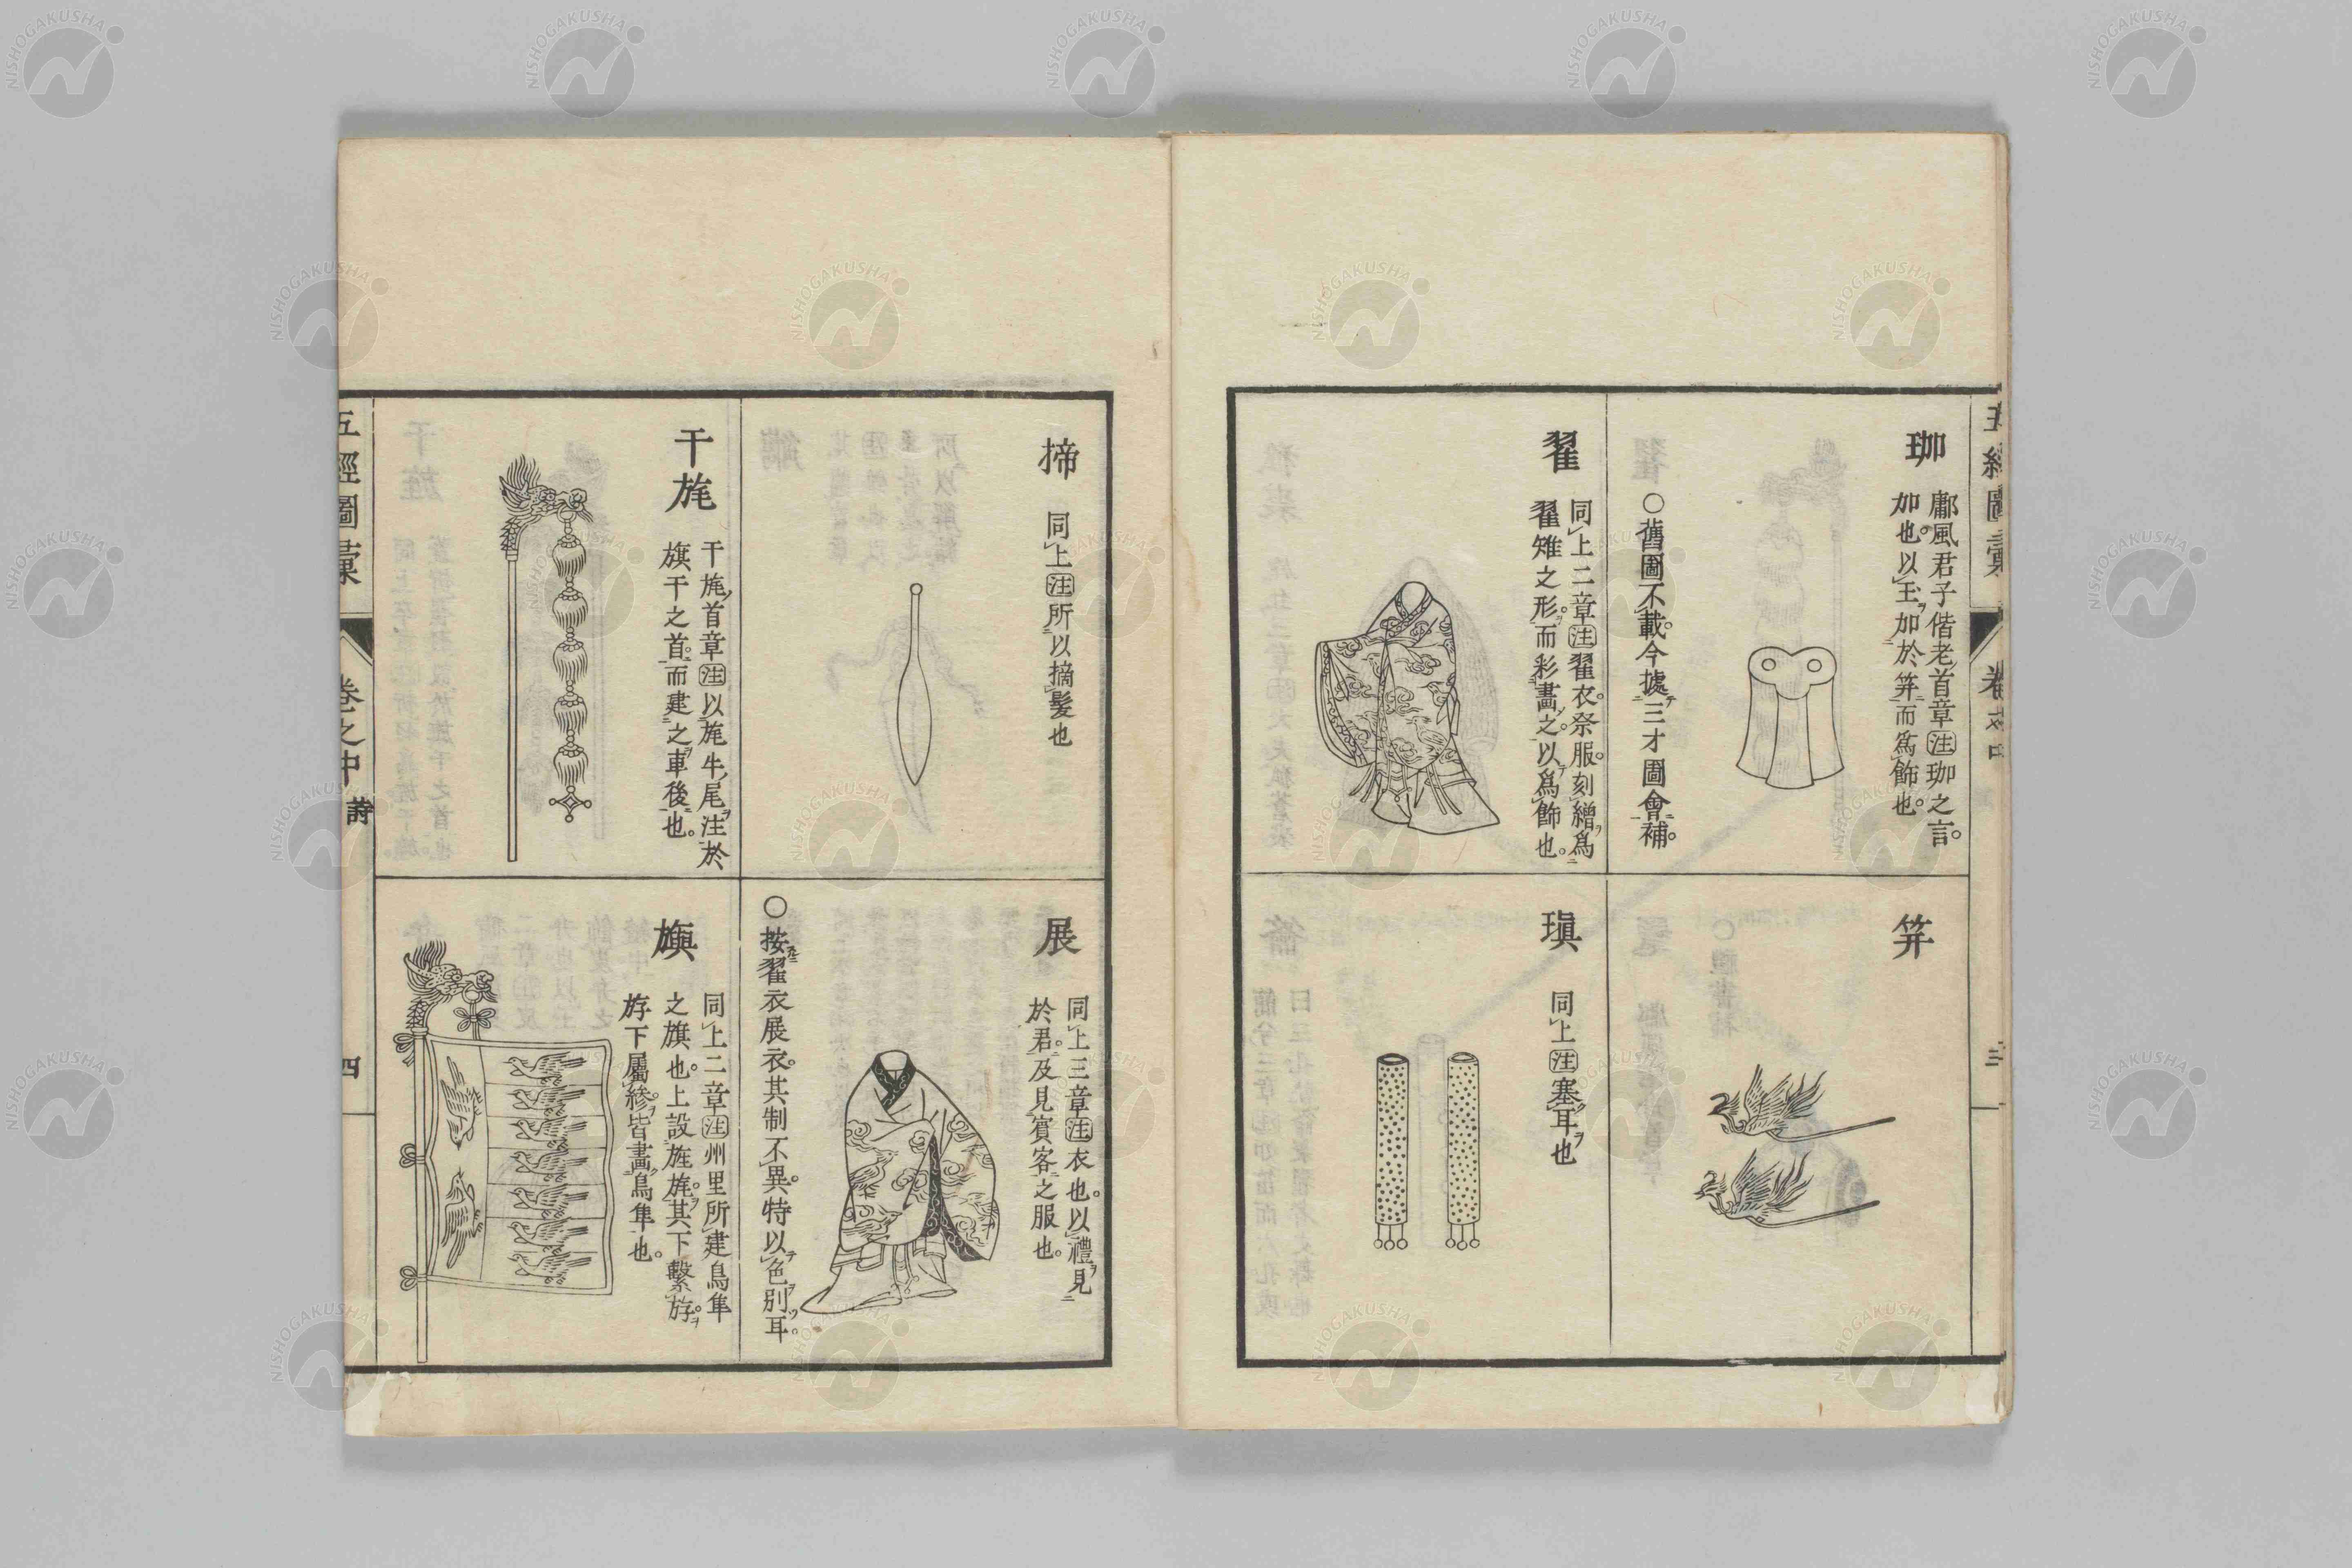 五經圖彙
卷之中
三
珈
鄘風君子偕老首章注珈之言
加也。以玉加於笄而爲飾也。
○舊圖不載。今據三才圖會補。
笄
翟
同上二章注翟衣。祭服。刻繒爲
翟雉之形。而彩畫之。以爲飾也。
瑱
同上注塞耳也
揥
同上注所以摘髮也
展
同上三章注衣也。以禮見
於君。及見賓客之服也。
○按翟衣展衣。其制不異。特以色別耳。
干旄
干旄首章注以旄牛尾注於
旗干之首。而建之車後也。
旟
同上二章注州里所建鳥隼
之旗也。上設旌旄。其下繫斿。
斿下屬縿。皆畫鳥隼也。
五經圖彙
卷之中
詩
四
NISHOGAKUSHA